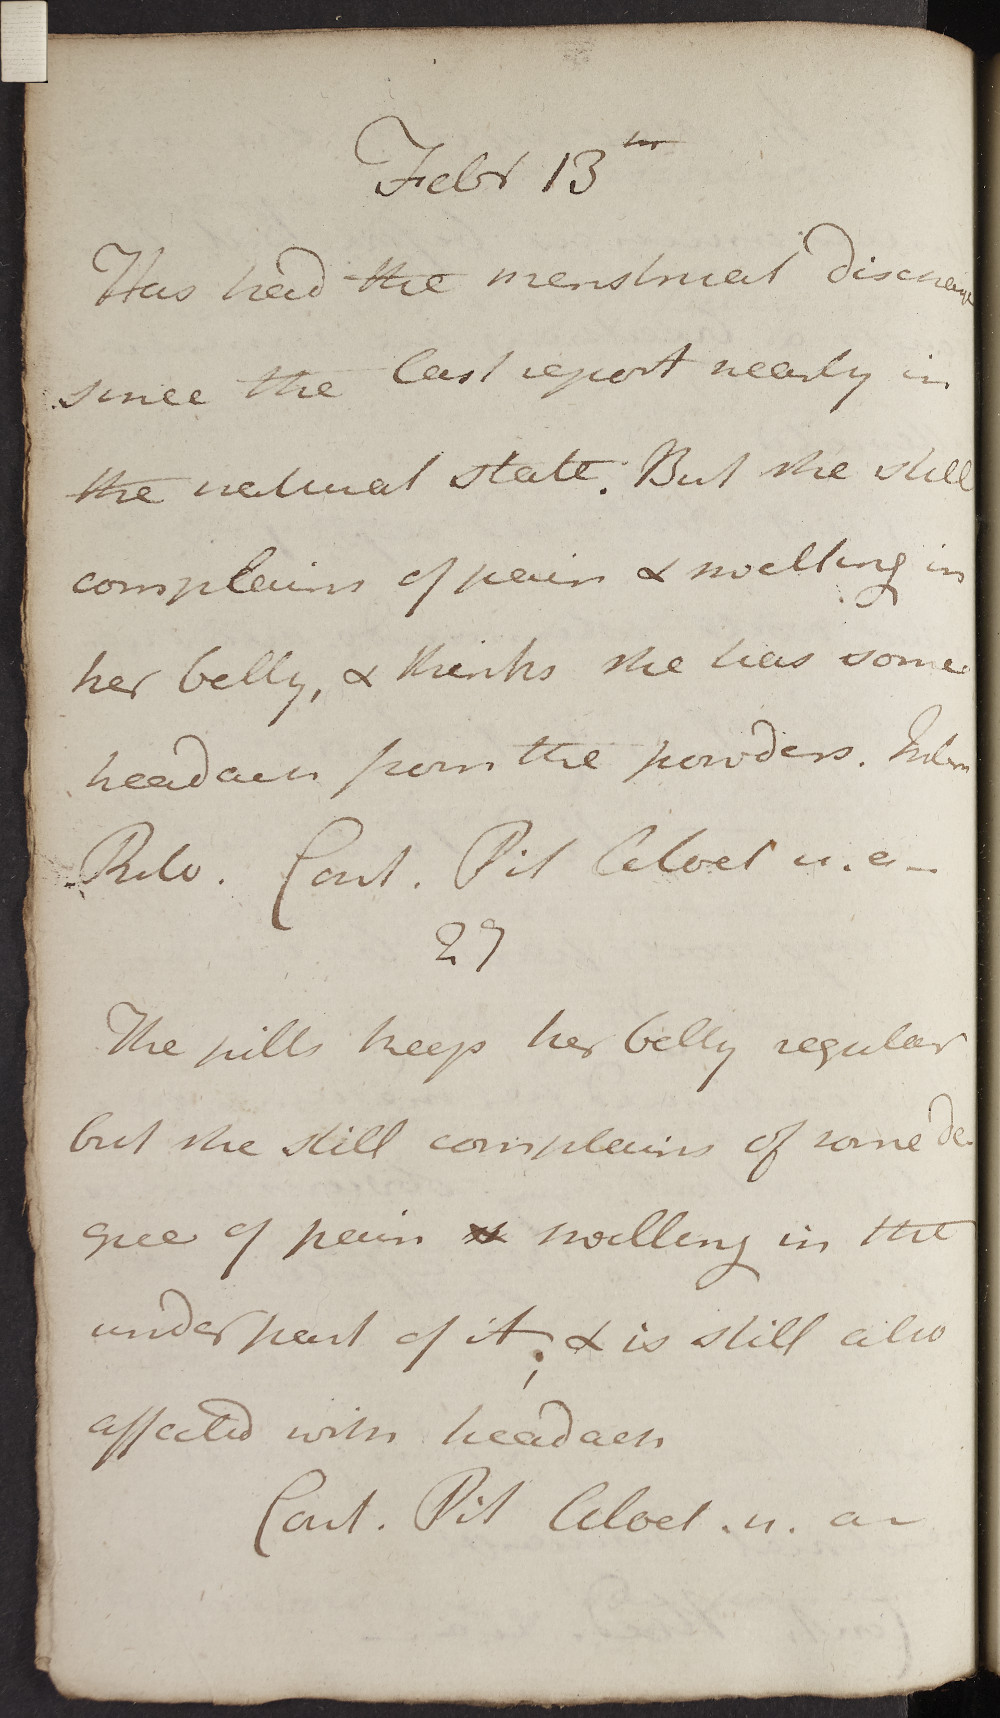 Febr 13th
Has had the menstrual discharge
since the last report nearly in
the natural state. But she still
complains of pain & swelling in
her belly, & thinks she has some
headach from the powders. Interm
Pulv. Cont. Pil Aloet u. a-
27
The pills keep her belly regular
but she still complains of some de-
gree of pain & swelling in the
under part of it; & is still also
affected with headach
Cont. Pil Aloet. u. a-